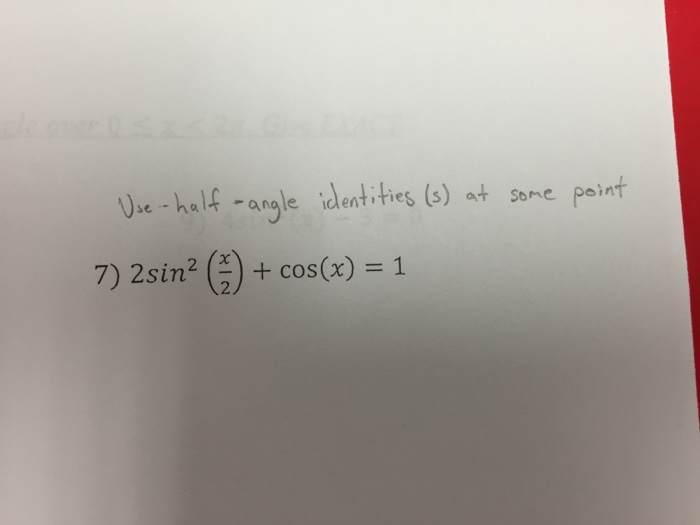 Use - half - angle identities (s) at some point
7) 2sin² (x/2) + cos(x) = 1